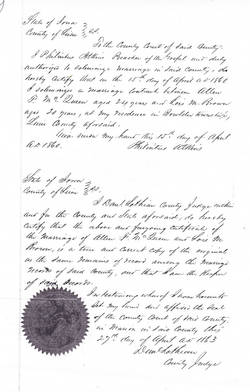 State of Iowa
County of Linn } SS.
To the County Court of said County:
I Philanter Atkins Preacher of the Gospel and duly
authorized to solemnize marriage in said County, do
hereby certify that on the 15th day of April A.D. 1860
I solemnized a marriage contract between Allen
P. McQueen aged 24 years and Lois M. Brown
aged 20 years, at my residence in Boulder township,
Linn County aforesaid.
Given under my hand this 15th day of April
A.D. 1860.
Atkins
State of Iowa
County of Linn } SS.
I Danl Lothian County Judge within
and for the County and State aforesaid, do hereby
certify that the above and foregoing certificate of
the Marriage of Allen P. McQueen and Lois M.
Brown, is a true and correct copy of the original
as the same remains of record among the Marriage
records of said County, and that I am the Keeper
of said records.
In testimony whereof I have hereunto
set my hand and affixed the seal
of the County Court of said County
in Marion in said County this
27th day of April A.D. 1863
Danl Lothian
County Judge